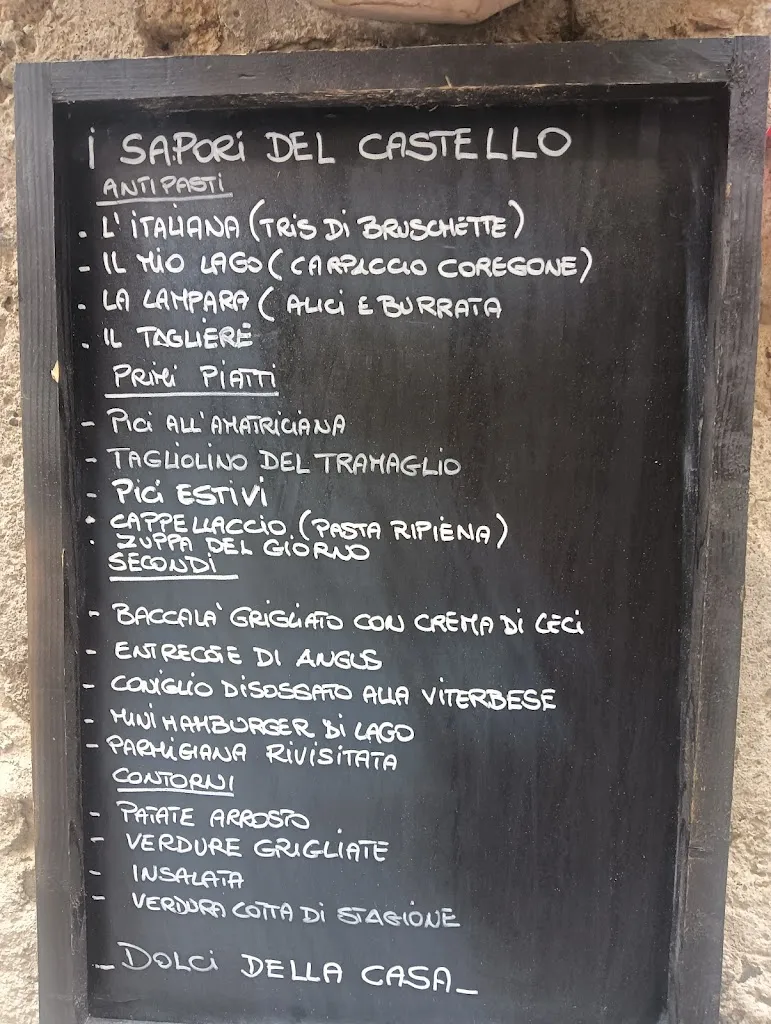 I SAPORI DEL CASTELLO
ANTIPASTI
. L'ITALIANA (TRIS DI BRUSCHETTE)
- IL MIO LAGO (CARPACCIO COREGONE)
. LA LAMPARA ( ALICI E BURRATA
. IL TAGLIERE
PRIMI PIATTI
- PICI ALL'AMATRICIANA
- TAGLIOLINO DEL TRAMAGLIO
- PICI ESTIVI
• CAPPELLACCIO (PASTA RIPIENA)
. ZUPPA DEL GIORNO
SECONDI
- BACCALA' GRIGLIATO CON CREMA DI CECI
- ENTRECOTE DI ANGUS
- CONIGLIO DISOSSATO ALLA VITERBESE
- MINI HAMBURGER DI LAGO
- PARMIGIANA RIVISITATA
CONTORNI
- PATATE ARROSTO
- VERDURE GRIGLIATE
- INSALATA
- VERDURA COTTA DI STAGIONE
_ DOLCI DELLA CASA _